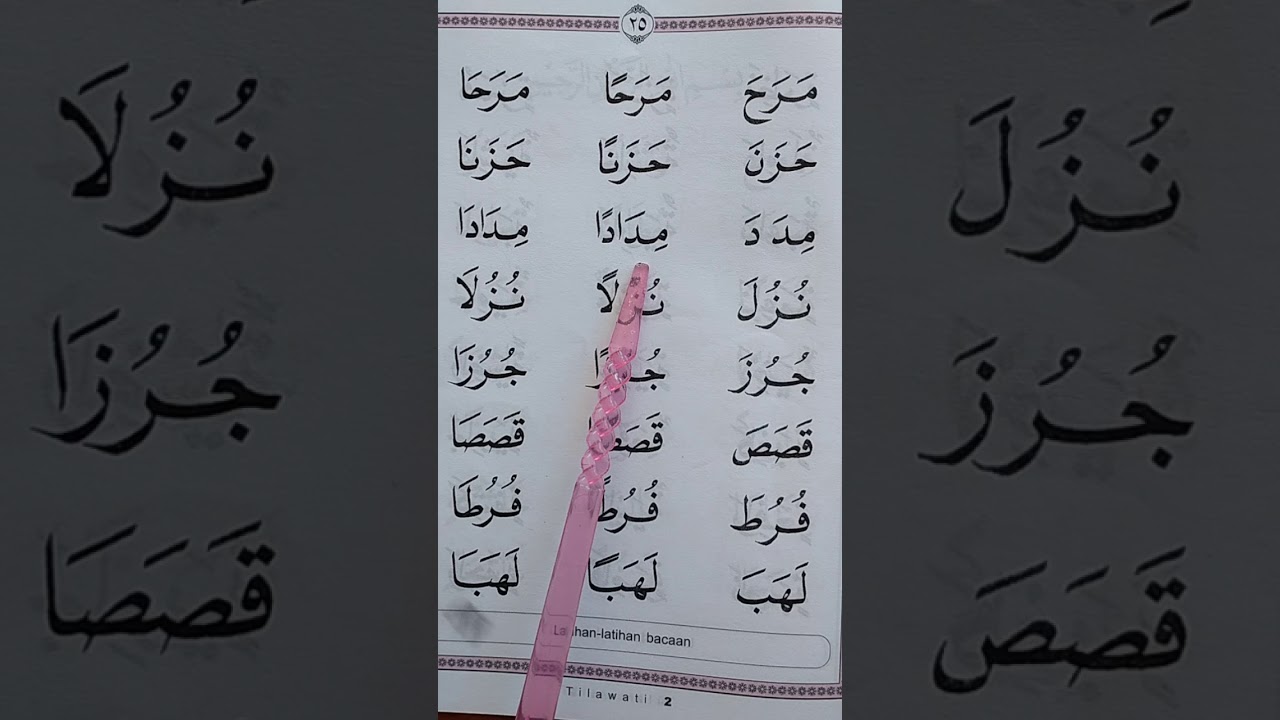 ٢٥
مَرَحَ مَرَحًا مَرَحَا
حَزَنَ حَزَنًا حَزَنَا
مِدَ دَ مِدَادًا مِدَادَا
نُزُلَ نُزُلًا نُزُلَا
جُرُزَ جُرُزًا جُرُزَا
قَصَصَ قَصَصًا قَصَصَا
فُرُطَ فُرُطًا فُرُطَا
لَهَبَ لَهَبًا لَهَبَا
Latihan-latihan bacaan
Tilawati 2